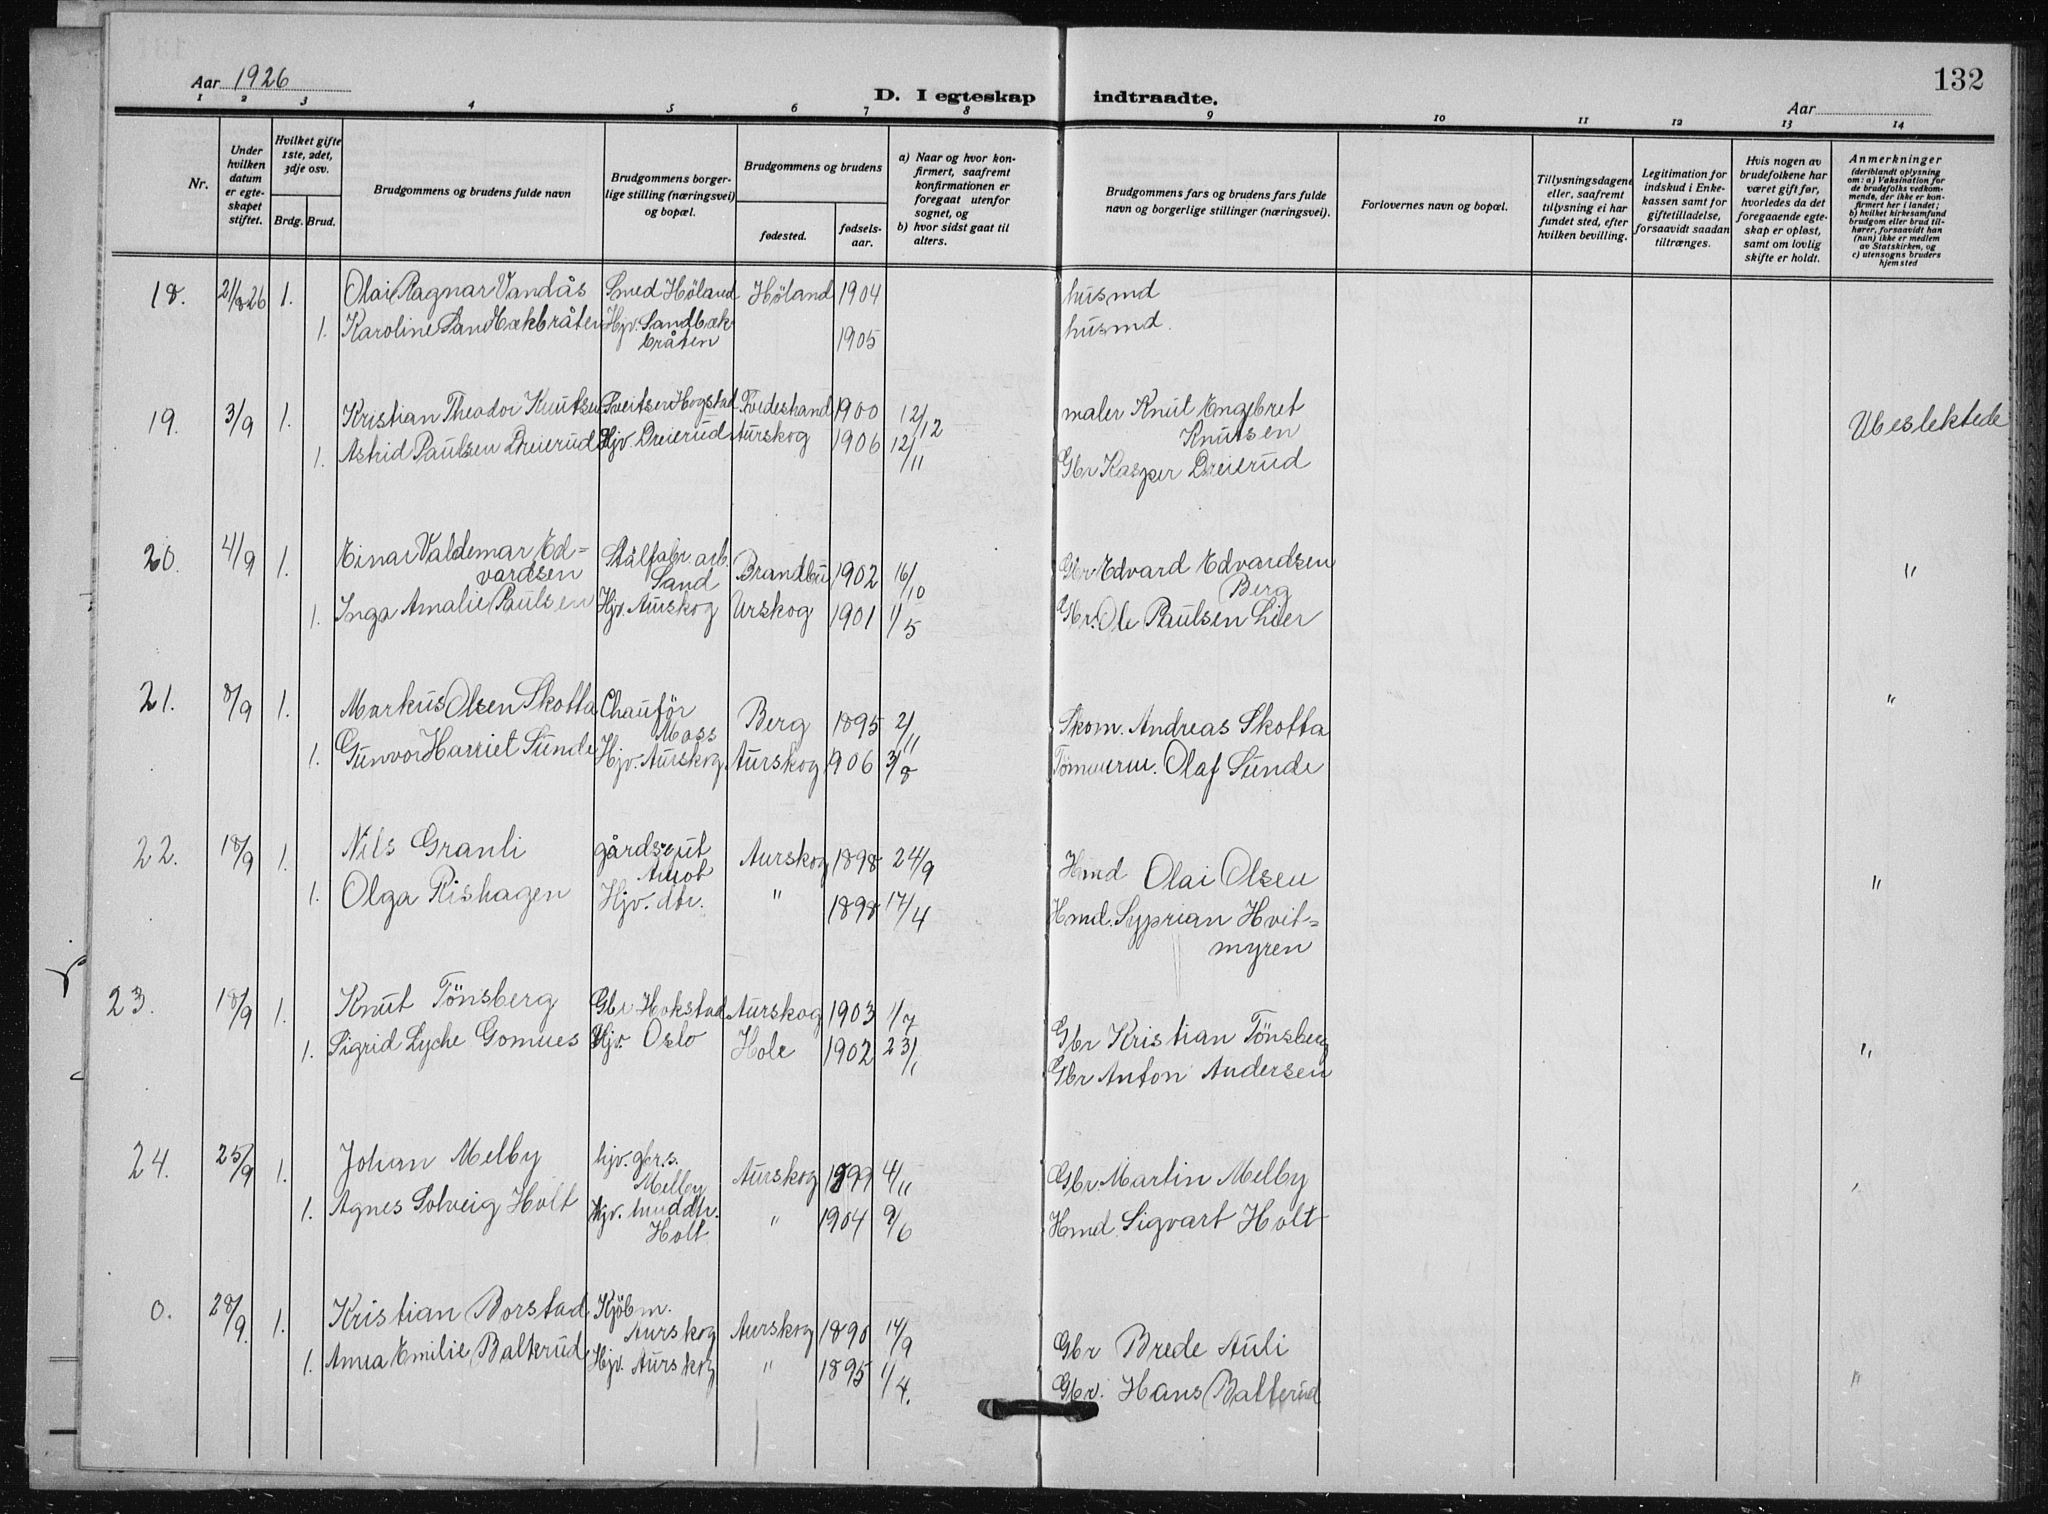 132
Aar 1926
D. I egteskap indtraadte.
Aar
1 2 3 4 5 6 7 8 9 10 11 12 13 14
Nr.
Under hvilken datum er egte-skapet stiftet.
Hvilket gifte 1ste, 2det, 3dje osv.
Brdg. Brud.
Brudgommens og brudens fulde navn
Brudgommens borger-lige stilling (næringsvei) og bopæl.
Brudgommens og brudens
fødested.
fødsels-aar.
a) Naar og hvor kon-firmert, saafremt konfirmationen er foregaat utenfor sognet, og
b) hvor sidst gaat til alters.
Brudgommens fars og brudens fars fulde navn og borgerlige stillinger (næringsvei).
Forlovernes navn og bopæl.
Tillysningsdagene eller, saafremt tillysning ei har fundet sted, efter hvilken bevilling.
Legitimation for indskud i Enke-kassen samt for giftetilladelse, forsaavidt saadan tiltrænges.
Hvis nogen av brudefolkene har været gift før, hvorledes da det foregaaende egte-skap er opløst, samt om lovlig skifte er holdt.
Anmerkninger (deriblandt oplysning om: a) Vaksination for de brudefolks vedkom-mende, der ikke er kon-firmert her i landet; b) hvilket kirkesamfund brudgom eller brud til-hører, forsaavidt han (hun) ikke er medlem av Statskirken, og c) utensogns bruders hjemsted
18. 21/8 26 1. Olai Ragnar Vandås Smed Höland Höland 1904 husmd
1. Karoline Sandbækbråten Hjv. Sandbæk 1905 husmd.
bråten
19. 3/9 1. Kristian Theodor Knutsen Sveitser Hogstad Tvedestrand 1900 12/12 maler Knut Engebret Ubeslektede
Knutsen
1. Astrid Paulsen Dreierud Hjv. Dreierud Aurskog 1906 12/11 Gbr Kasper Dreierud
20. 4/9 1. Einar Valdemar Ed- Stålfabr. arb. Brandbu 1902 16/10 Gbr Edvard Edvardsen "
vardsen Sand Berg
1. Inga Amalie Paulsen Hjv. Aurskog Urskog 1901 1/5 Gbr. Ole Paulsen Lier
21. 8/9 1. Markus Olsen Skotta Chauför Berg 1895 2/11 Skom. Andreas Skotta "
Moss
1. Gunvor Harriet Sunde Hjv. Aurskog Aurskog 1906 3/8 Tömmerm. Olaf Sunde
22. 18/9 1. Nils Granli gårdsgut Aurskog 1898 24/9 Hmd Olai Olsen "
1. Olga Rishagen Hjv. dtr. " 1898 17/4 Hmd. Syprian Hvit-
myren
23. 18/9 1. Knut Tönsberg Gbr Hokstad Aurskog 1903 1/7 Gbr Kristian Tönsberg "
1. Sigrid Lyche Hjv. Oslo Hole 1902 23/11 Gbr Anton Andersen
24. 25/9 1. Johan Melby hjv. gbr.s. Aurskog 1899 4/11 Gbr. Martin Melby
Melby
1. Agnes Solveig Holt Hjv. hmddtr. " 1904 9/6 Hmd. Sigvart Holt
Holt
0. 28/9. 1. Kristian Borstad Kjöbm. Aurskog 1890 14/9 Gbr Brede Auli "
Aurskog
1. Anna Emilie Balterud Hjv. Aurskog " 1895 1/4. Gbr. Hans Balterud